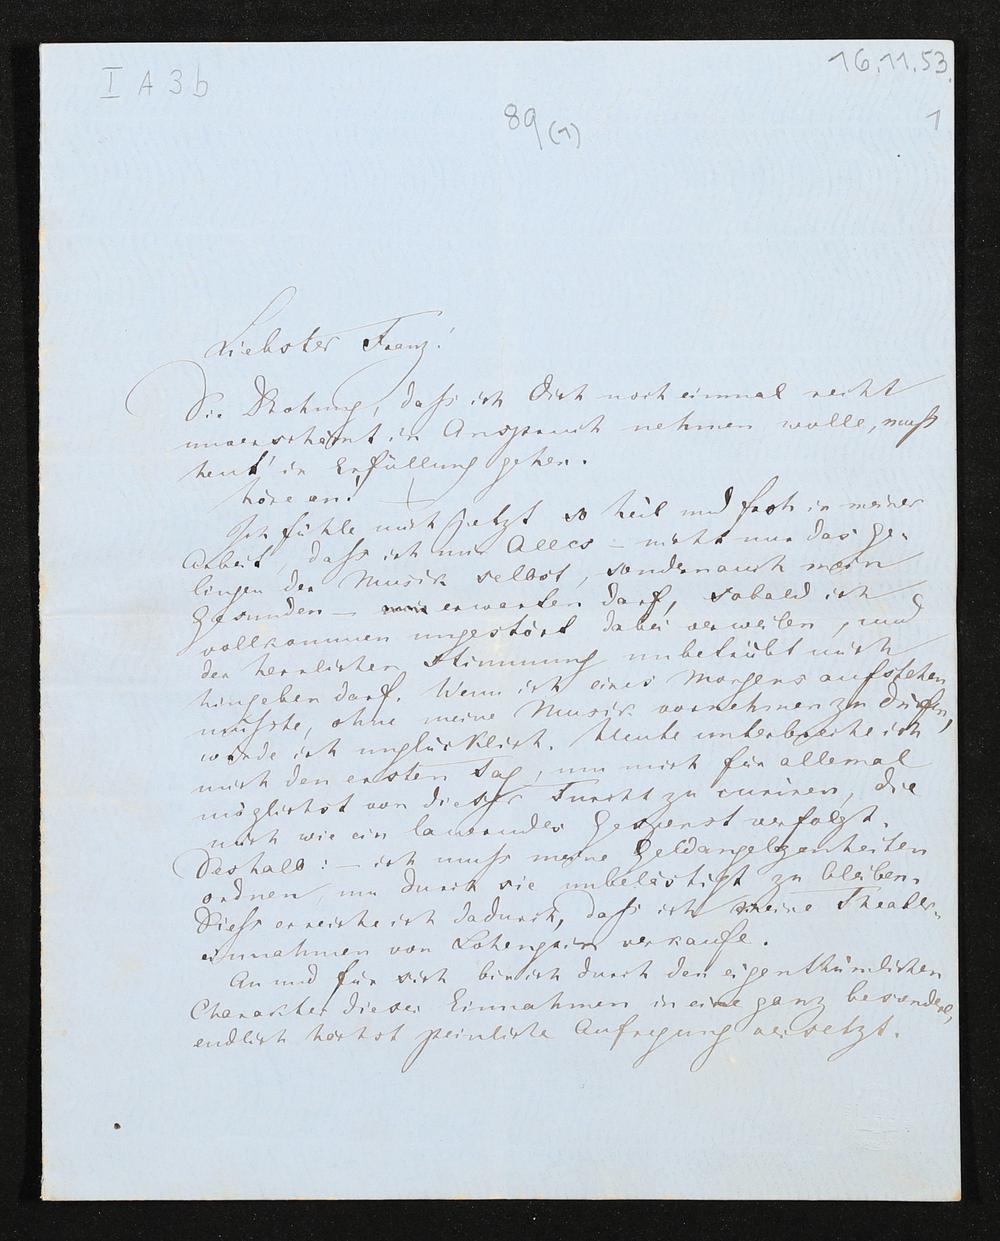 I A 3 b
16.11.53.
89 (1)
1
Liebster Franz!
Die Drohung, daß ich Dich noch einmal recht
unverschämt in Anspruch nehmen wolle, muß
heut' in Erfüllung gehen.
Höre an!
Ich fühle mich jetzt so heil und froh in meiner
Arbeit, daß ich mir Alles – nicht nur das Ge-
lingen der Musik selbst, sondern auch mein
Gesunden – erwarten darf, sobald ich
vollkommen ungestört dabei verweilen, und
der herrlichen Stimmung unbetrübt mich
hingeben darf. Wenn ich eines Morgens aufstehen
müßte, ohne meine Musik vornehmen zu dürfen,
würde ich unglücklich. Heute unterbreche ich
mich den ersten Tag, um mich für allemal
möglichst von dieser Furcht zu curiren, die
mich wie ein lauerndes Gespenst verfolgt.
Deshalb: – ich muß meine Geldangelegenheiten
ordnen, um durch sie unbelästigt zu bleiben.
Dieß erreiche ich dadurch, daß ich meine Theater-
einnahmen von Lohengrin verkaufe.
An und für sich bin ich durch den eigenthümlichen
Charakter dieser Einnahmen in eine ganz besondere,
endlich höchst peinliche Aufregung versetzt.